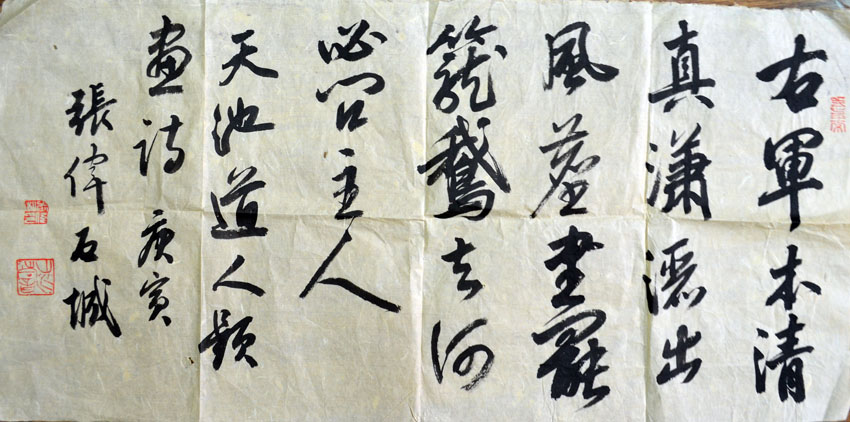 右軍本清
真瀟灑出
風塵書罷
籠鵝去何
必問主人
天池道人題
畫詩 庚寅
張偉石城